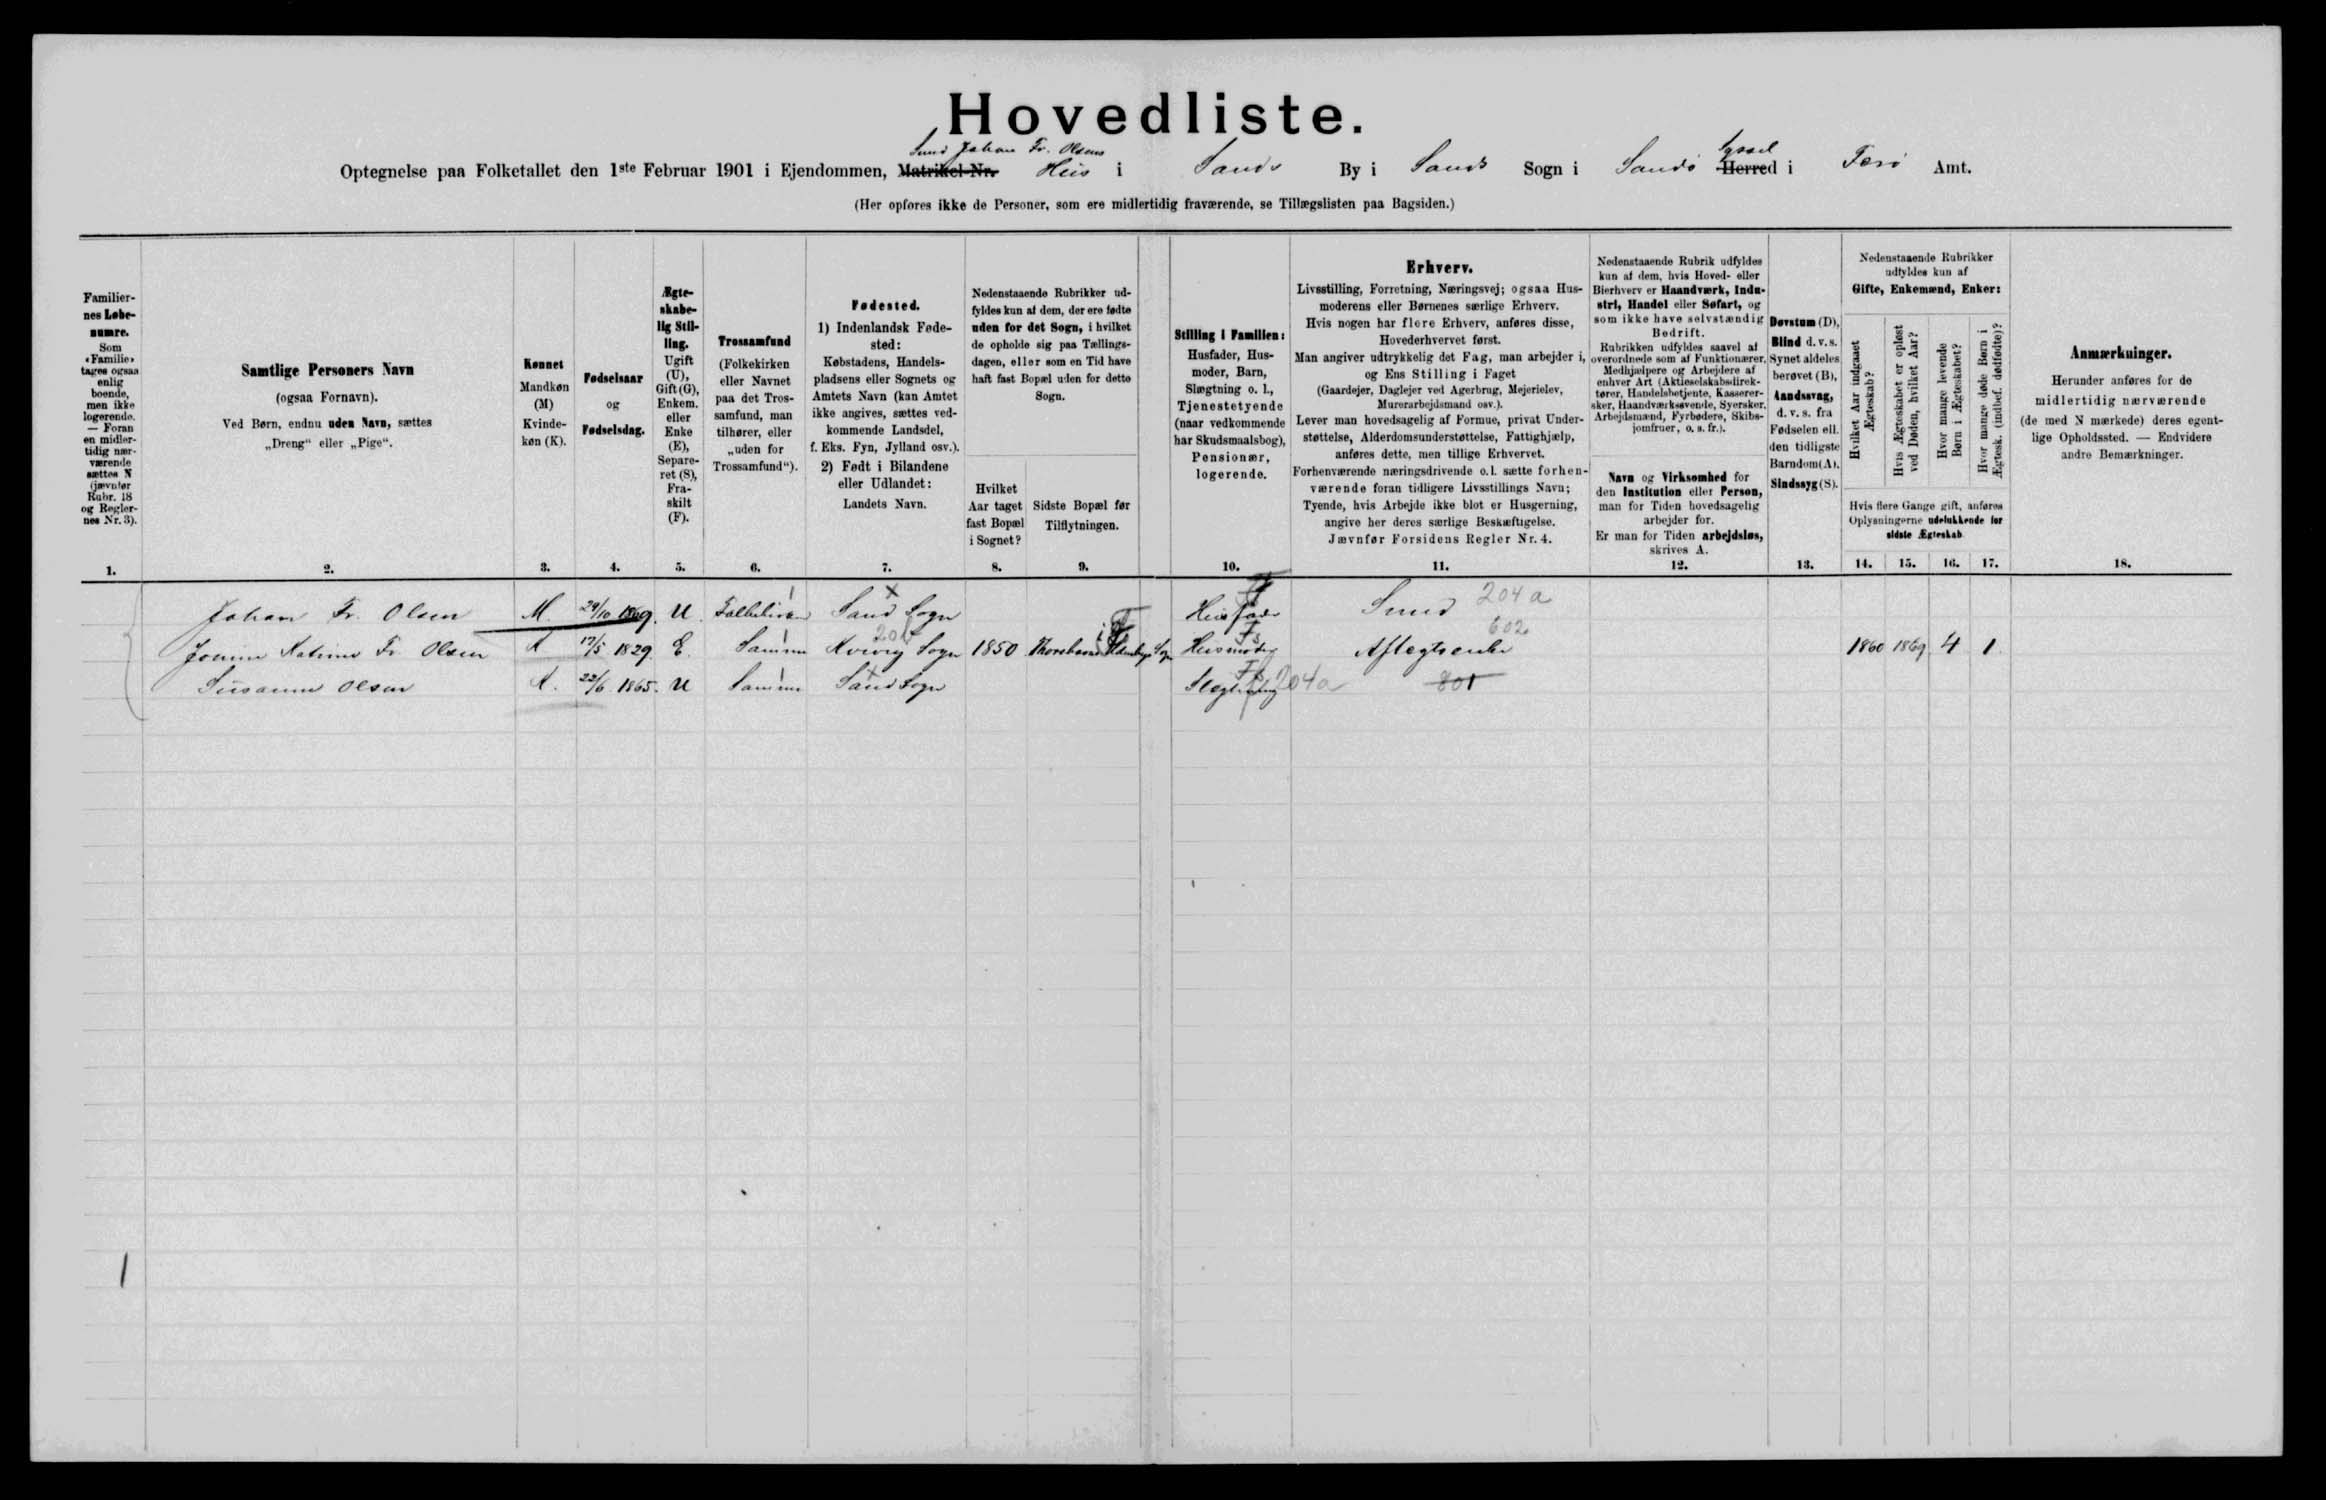 Hovedliste.
Smed Johan Fr. Olsens Syssel
Optegnelse paa Folketallet den 1ste Februar 1901 i Ejendommen, Matrikel-Nr. Hus i Sands By i Sands Sogn i Sandø Herred i Færø Amt.
(Her opføres ikke de Personer, som ere midlertidig fraværende, se Tillægslisten paa Bagsiden.)
Familier-
nes Løbe-
numre.
Som
«Familie»
tages ogsaa
enlig
boende,
men ikke
logerende.
— Foran
en midler-
tidig nær-
værende
sættes N
(jævnfør
Rubr. 18
og Regler-
nes Nr. 3).
1.
Samtlige Personers Navn
(ogsaa Fornavn).
Ved Børn, endnu uden Navn, sættes
„Dreng“ eller „Pige“.
2.
Kønnet
Mandkøn
(M)
Kvinde-
køn (K).
3.
Fødselsaar
og
Fødselsdag.
4.
Ægte-
skabe-
lig Stil-
ling.
Ugift
(U),
Gift (G),
Enkem.
eller
Enke
(E),
Separe-
ret (S),
Fra-
skilt
(F).
5.
Trossamfund
(Folkekirken
eller Navnet
paa det Tros-
samfund, man
tilhører, eller
„uden for
Trossamfund“).
6.
Fødested.
1) Indenlandsk Føde-
sted:
Købstadens, Handels-
pladsens eller Sognets og
Amtets Navn (kan Amtet
ikke angives, sættes ved-
kommende Landsdel,
f. Eks. Fyn, Jylland osv.).
2) Født i Bilandene
eller Udlandet:
Landets Navn.
7.
Nedenstaaende Rubrikker ud-
fyldes kun af dem, der ere fødte
uden for det Sogn, i hvilket
de opholde sig paa Tællings-
dagen, eller som en Tid have
haft fast Bopæl uden for dette
Sogn.
Hvilket
Aar taget
fast Bopæl
i Sognet?
8.
Sidste Bopæl før
Tilflytningen.
9.
Stilling i Familien:
Husfader, Hus-
moder, Barn,
Slægtning o. l.,
Tjenestetyende
(naar vedkommende
har Skudsmaalsbog),
Pensionær,
logerende.
10.
Erhverv.
Livsstilling, Forretning, Næringsvej; ogsaa Hus-
moderens eller Børnenes særlige Erhverv.
Hvis nogen har flere Erhverv, anføres disse,
Hovederhvervet først.
Man angiver udtrykkelig det Fag, man arbejder i,
og Ens Stilling i Faget
(Gaardejer, Daglejer ved Agerbrug, Mejerielev,
Murerarbejdsmand osv.).
Lever man hovedsagelig af Formue, privat Under-
støttelse, Alderdomsunderstøttelse, Fattighjælp,
anføres dette, men tillige Erhvervet.
Forhenværende næringsdrivende o. l. sætte forhen-
værende foran tidligere Livsstillings Navn;
Tyende, hvis Arbejde ikke blot er Husgerning,
angive her deres særlige Beskæftigelse.
Jævnfør Forsidens Regler Nr. 4.
11.
Nedenstaaende Rubrik udfyldes
kun af dem, hvis Hoved- eller
Bierhverv er Haandværk, Indu-
stri, Handel eller Søfart, og
som ikke have selvstændig
Bedrift.
Rubrikken udfyldes saavel af
overordnede som af Funktionærer,
Medhjælpere og Arbejdere af
enhver Art (Aktieselskabsdirek-
tører, Handelsbetjente, Kasserer-
sker, Haandværkssvende, Syersker,
Arbejdsmænd, Fyrbødere, Skibs-
jomfruer, o. s. fr.).
Navn og Virksomhed for
den Institution eller Person,
man for Tiden hovedsagelig
arbejder for.
Er man for Tiden arbejdsløs,
skrives A.
12.
Døvstum (D),
Blind d. v. s.
Synet aldeles
berøvet (B),
Aandssvag,
d. v. s. fra
Fødselen ell.
den tidligste
Barndom (A),
Sindssyg (S).
13.
Nedenstaaende Rubrikker
udfyldes kun af
Gifte, Enkemænd, Enker:
Hvilket Aar indgaaet
Ægteskab?
Hvis Ægteskabet er opløst
ved Døden, hvilket Aar?
Hvor mange levende
Børn i Ægteskabet?
Hvor mange døde Børn i
Ægtesk. (indbef. dødfødte)?
Hvis flere Gange gift, anføres
Oplysningerne udelukkende for
sidste Ægteskab.
14. 15. 16. 17.
Anmærkninger.
Herunder anføres for de
midlertidig nærværende
(de med N mærkede) deres egent-
lige Opholdssted. — Endvidere
andre Bemærkninger.
18.
Johan Fr. Olsen M. 29/10 1869. U. Folkekirken Sand Sogn Husfader Smed 204a
Katrine Fr. Olsen K 17/5 1829. E. Samme Kvivig Sogn 1850 Thorshavn Sogn Husmoder Aftægtsenke 602 1860 1869 4 1
Susanne Olsen K. 22/6 1865. U Samme Sand Sogn Slægtning 204a 801